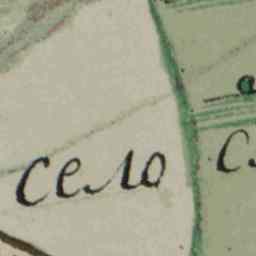 село С